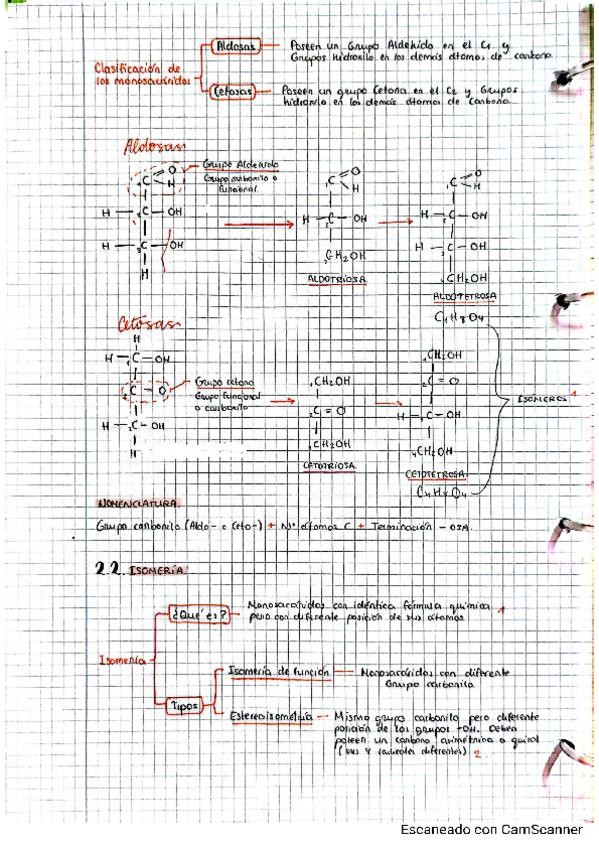 Clasificación de
los monosacáridos
Aldosas
Poseen un Grupo Aldehído en el C1 y
Grupos hidroxilo en los demás átomos de carbono
Cetosas
Poseen un grupo Cetona en el C2 y Grupos
hidroxilo en los demás átomos de carbono
Aldosas
Grupo Aldehído
Grupo carbonilo o
funcional
1C = O
H
H — 2C — OH
H — 3C — OH
H
1C = O
H
H — C — OH
CH2OH
ALDOTRIOSA
1C = O
H
H — C — OH
H — C — OH
CH2OH
ALDOTETROSA
C4H8O4
Cetosas
H
H — 1C — OH
2C — O
H — C — OH
H
Grupo cetona
Grupo funcional
o carbonilo
1CH2OH
2C = O
3CH2OH
CETOTRIOSA
1CH2OH
2C = O
H — C — OH
4CH2OH
CETOTETROSA
C4H8O4
ISÓMEROS 1
NOMENCLATURA
Grupo carbonilo (Aldo- o Ceto-) + Nº átomos C + Terminación -OSA.
2.2. ISOMERÍA
Isomería
¿Qué es?
Monosacáridos con idéntica fórmula química 1
pero con diferente posición de sus átomos
Tipos
Isomería de función — Monosacáridos con diferente
Grupo carbonilo
Estereoisometría — Mismo grupo carbonilo pero diferente
posición de los grupos -OH. Deben
poseen un carbono asimétrico o quiral
(sus 4 radicales diferentes) 2.
Escaneado con CamScanner